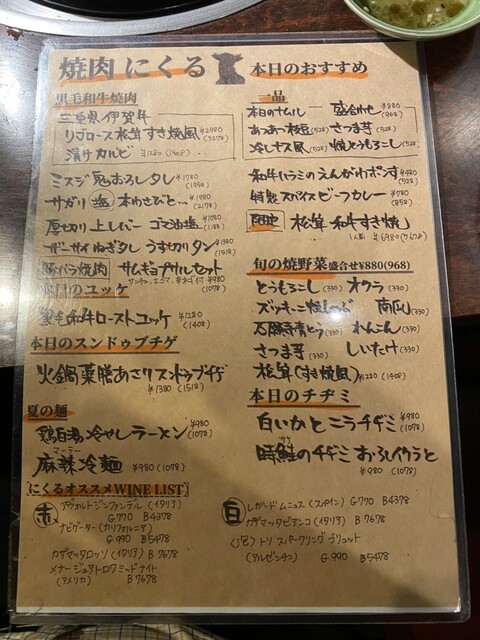 焼肉 にくる 本日のおすすめ
黒毛和牛焼肉
三重県 伊賀牛
リブロース松茸すき焼風 ¥2980 (3278)
漬けカルビ ¥1280 (1408)
ミスジ 鬼おろしタレ ¥1780 (1958)
サガリ 塩 本わさびと… ¥1980 (2178)
厚切り上レバー ゴマ油塩 ¥1080 (1188)
ザーサイねぎタレ うす切りタン ¥1380 (1518)
豚バラ焼肉 サムギョプサルセット
サンチュ、エゴマ、辛ネギ付 ¥980 (1078)
本日のユッケ
黒毛和牛ローストユッケ ¥1280 (1408)
本日のスンドゥブチゲ
火鍋薬膳あさりスンドゥブチゲ
¥1380 (1518)
夏の麺
鶏白湯冷やしラーメン ¥980 (1078)
麻辣冷麺 ¥980 (1078)
マーラー
にくるオススメWINE LIST
赤
(イタリア)
G770 B4378
ナビゲーター (カリフォルニア)
G990 B5478
カザマッタロッソ (イタリア) B7678
メナージュアトロワ ミッドナイト
(アメリカ) B7678
一品
本日のナムル 盛合わせ ¥880 (968)
あつあつ枝豆 (528) さつま芋 (528)
冷しナス風 (528) 焼とうもろこし (528)
和牛ハラミのえんがわポン酢 ¥480 (528)
特製スパイスビーフカレー ¥780 (858)
限定 松茸 和牛すき焼
1人前 ¥6980 (7678)
旬の焼野菜 盛合せ¥880(968)
とうもろこし (330) オクラ (330)
ズッキーニ (330) 南瓜 (330)
万願寺青とう (330) れんこん (330)
さつま芋 (330) しいたけ (330)
松茸(すき焼風) ¥1280 (1408)
本日のチヂミ
白いかとニラチヂミ ¥980 (1078)
時鮭のチヂミ おろしイクラと
¥980 (1078)
白
レガードムニュス (スペイン) G770 B4378
カザマッタビアンコ (イタリア) B7678
(泡) トリ スパークリングブリュット
(アルゼンチン) G990 B5478